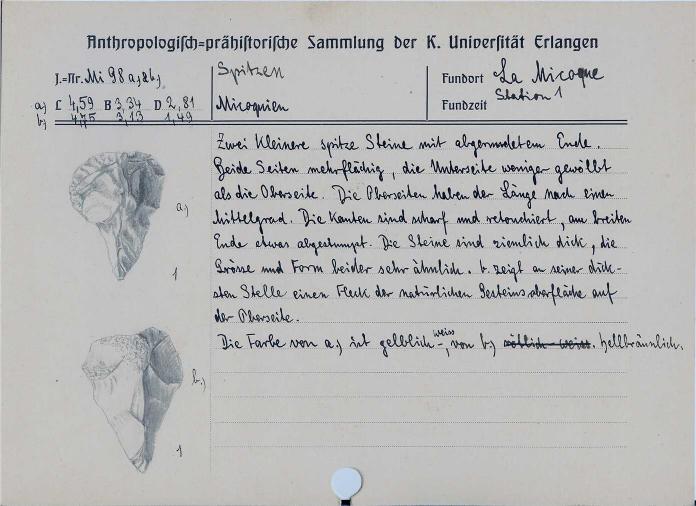 Anthropologisch=prähistorische Sammlung der K. Universität Erlangen
J.=Nr. Mi 98 a, & b,
Spitzen
Fundort La Micoque
Station 1
a) L 4,59 B 3,34 D 2,81
Micoquien
Fundzeit
b) 4,75 3,13 1,49
Zwei kleinere spitze Steine mit abgerundetem Ende.
Beide Seiten mehrflächig, die Unterseite weniger gewölbt
als die Oberseite. Die Oberseiten haben der Länge nach einen
Mittelgrad. Die Kanten sind scharf und retouchiert, am breiten
Ende etwas abgestumpt. Die Steine sind ziemlich dick, die
Grösse und Form beider sehr ähnlich. b. zeigt an seiner dick-
sten Stelle einen Fleck der natürlichen Gesteinsoberfläche auf
der Oberseite.
Die Farbe von a) ist gelblich-weiss, von b) rötlich-weiss. hellbräunlich.
a)
1
b.)
1